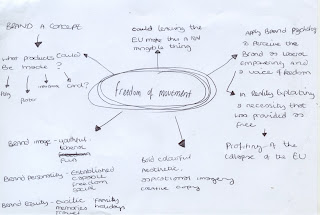 BRAND A CONCEPT
what products could
Be made?
Card?
Could leaving the
EU make this a non
tangible thing
Apply Brand Psychology
& Perceive the
Brand as liberal
empowering and
a voice of freedom
In Reality Exploiting
a necessity that
was provided as
free
Profiting of the
collapse of the EU
freedom of movement
Brand image - youthful
liberal
Fun
Brand personality - Established
capable
freedom
Bold colourful
Aesthetic
aspirational imagery
creative copy
Brand Equity - exotic family
memories holidays
travel